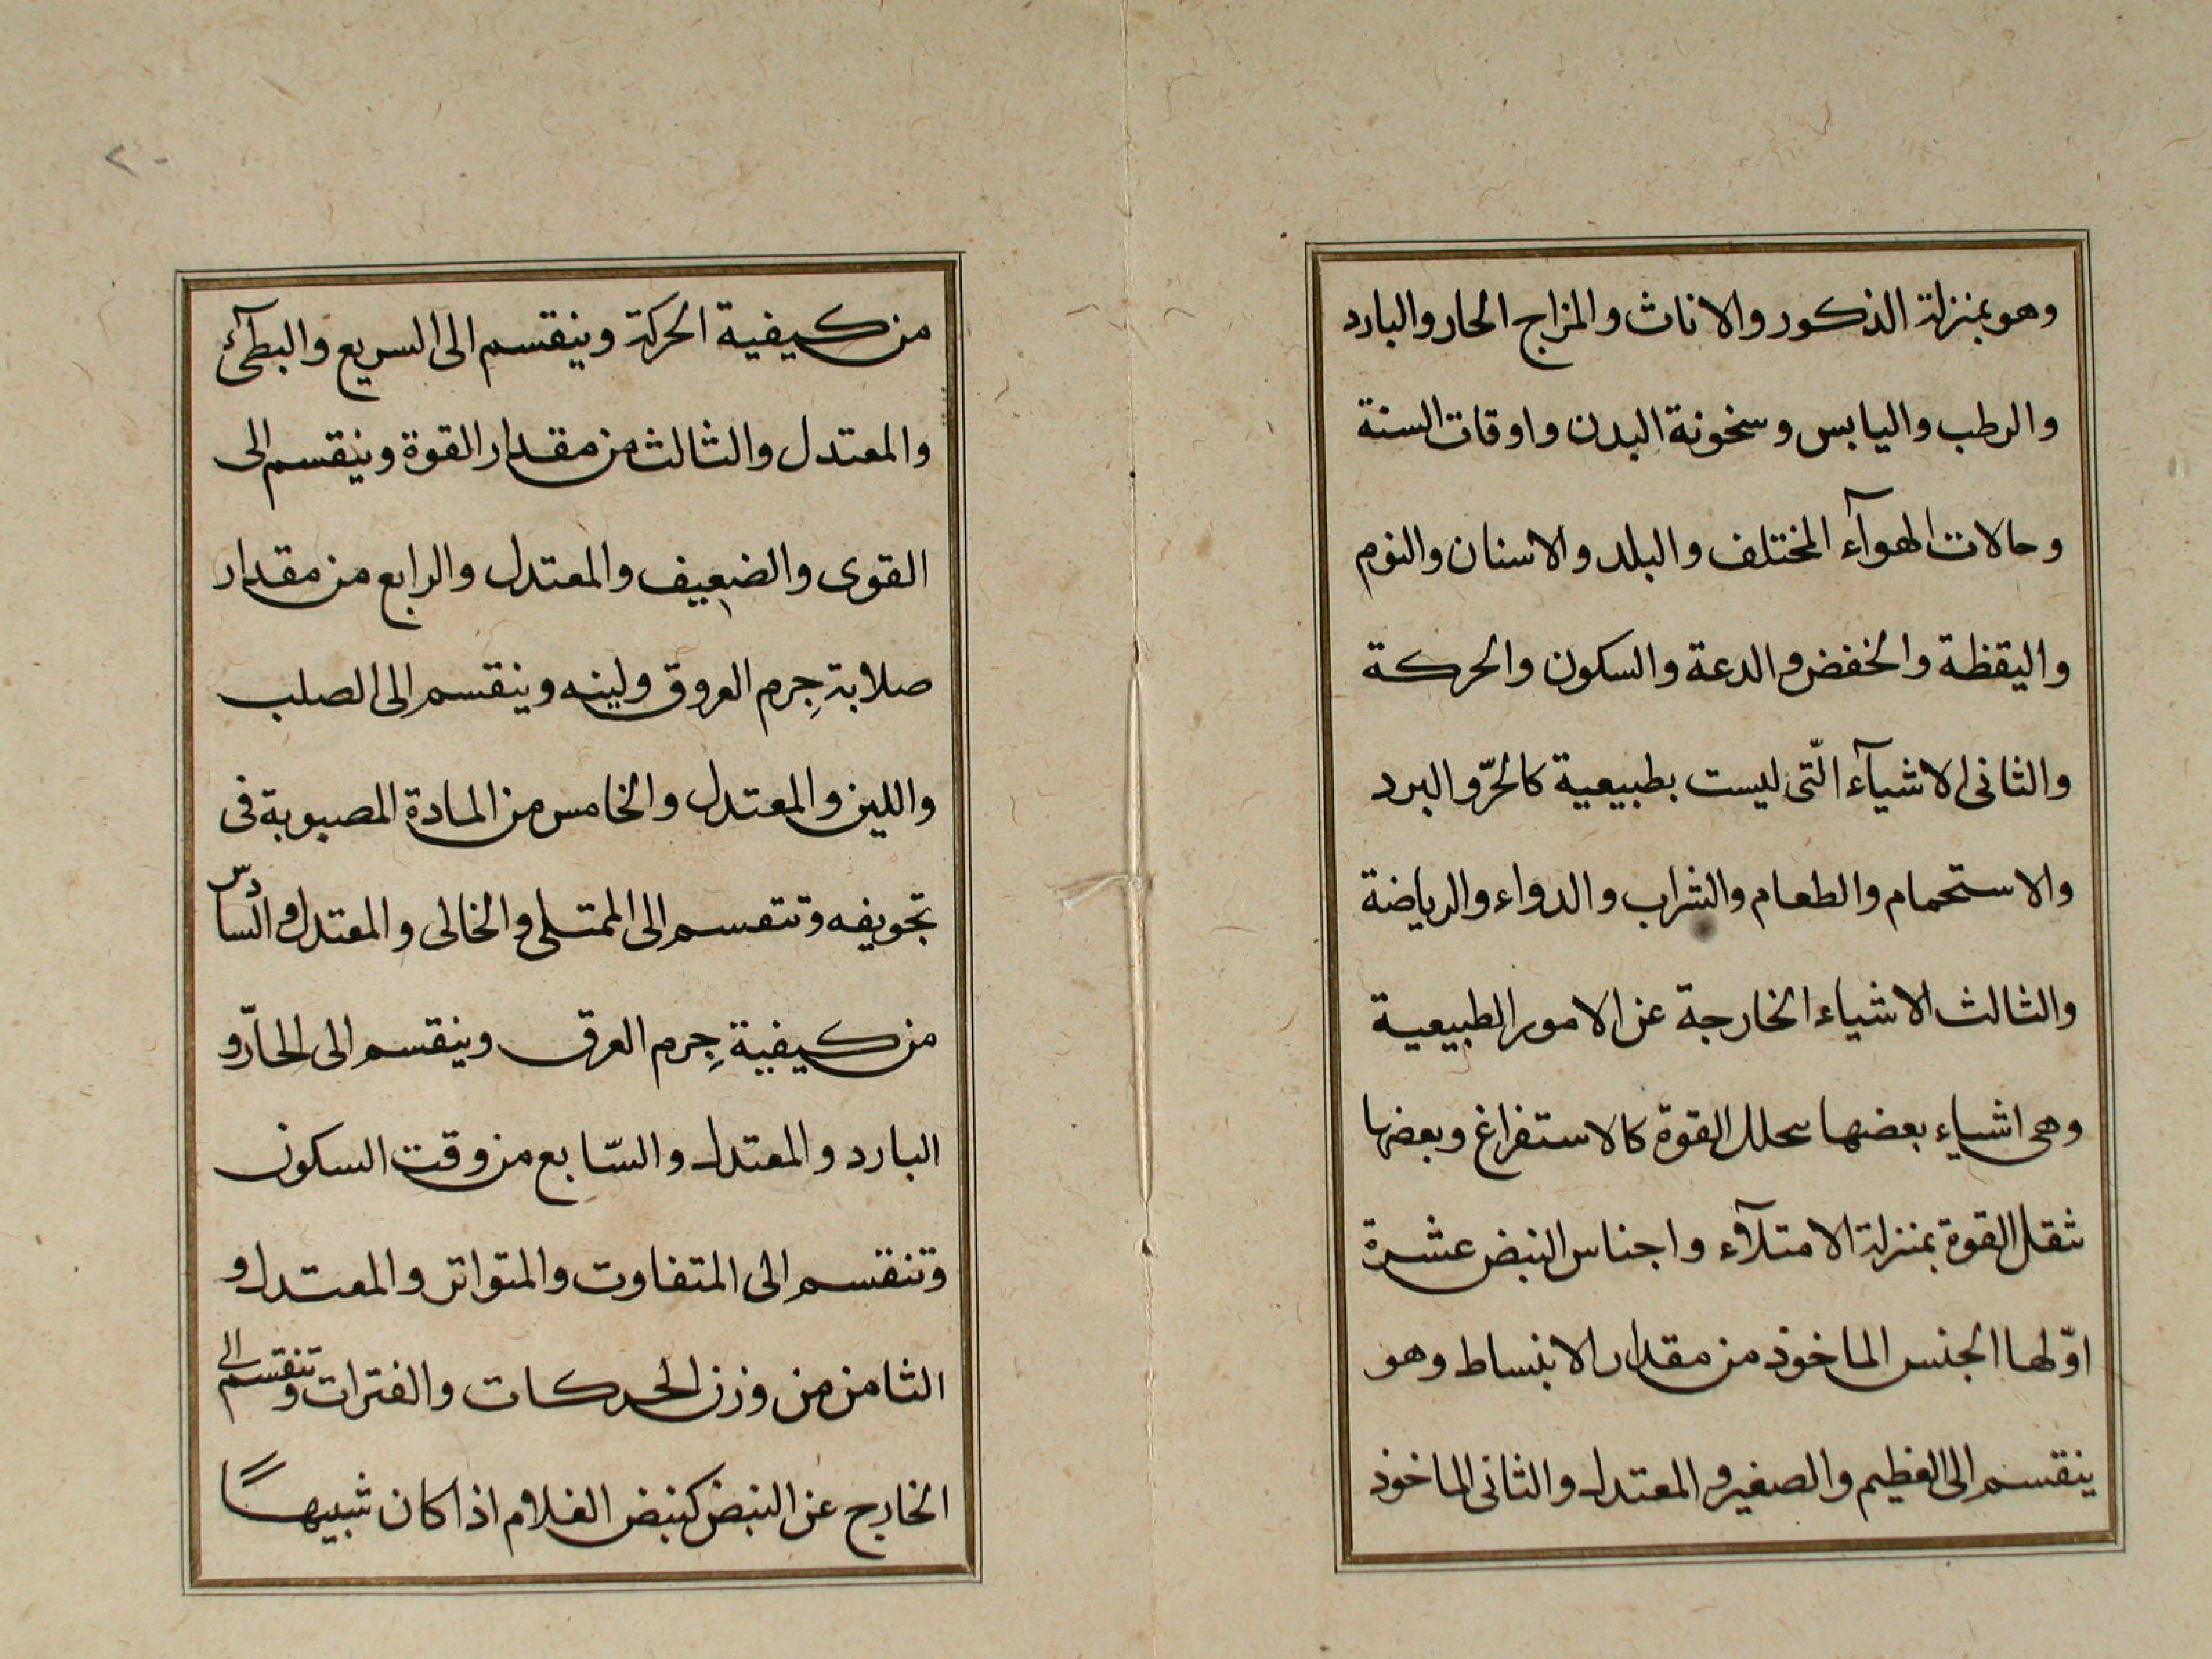 وهو بمنزلة الذكور والاناث والمزاج الحار والبارد
والرطب واليابس وسخونة البدن واوقات السنة
وحالات الهوآء المختلف والبلد والاسنان والنوم
واليقظة والخفض والدعة والسكون والحركة
والثانى الاشيآء الّتى ليست بطبيعية كالحرّ والبرد
والاستحمام والطعام والشراب والدواء والرياضة
والثالث الاشياء الخارجة عن الامور الطبيعية
وهى اشياء بعضها يحلل القوة كالاستفراغ وبعضها
ثقل القوة بمنزلة الامتلآء واجناس النبض عشرة
اوّلها الجنس الماخوذ من مقدار الانبساط وهو
ينقسم الى العظيم والصغير والمعتدل والثانى الماخوذ
٢٠
من كيفية الحركة وينقسم الى السريع والبطئ
والمعتدل والثالث من مقدار القوة وينقسم الى
القوى والضعيف والمعتدل والرابع من مقدار
صلابة جِرم العروق ولينه وينقسم الى الصلب
واللين والمعتدل والخامس من المادة المصبوبة فى
تجويفه وتنقسم الى الممتلى والخالى والمعتدل والسادس
من كيفية جِرم العرق وينقسم الى الحارّ و
البارد والمعتدل والسّابع من وقت السكون
وتنقسم الى المتفاوت والمتواتر والمعتدل و
الثامن من وزن الحركات والفترات وتنقسم الى
الخارج عن النبض كنبض الغلام اذا كان شبيهاً